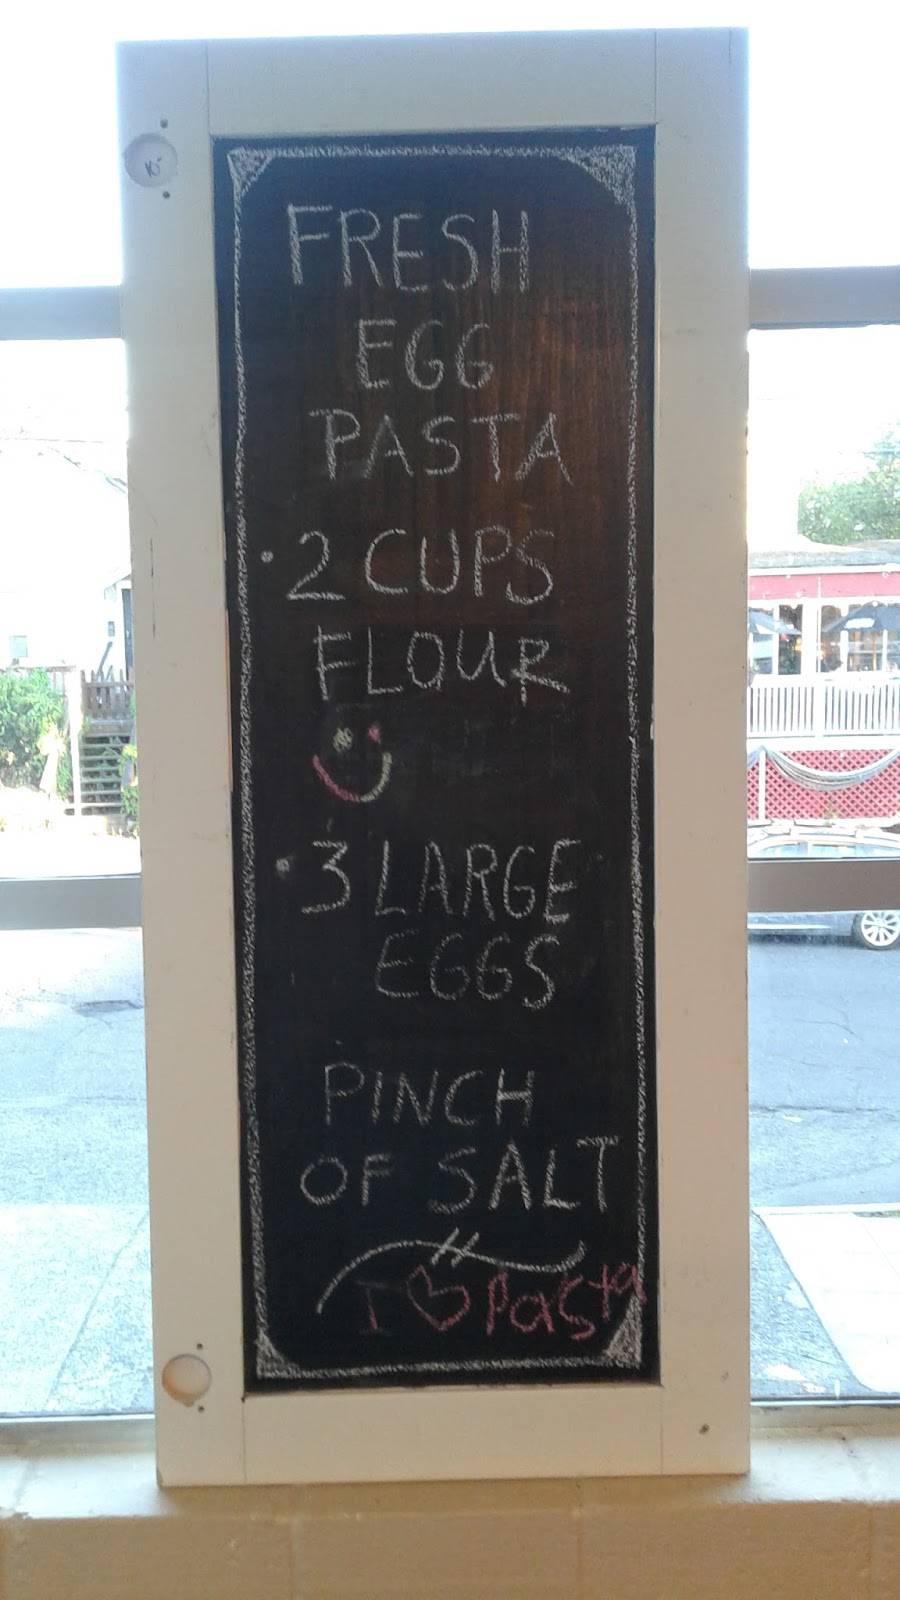 FRESH
EGG
PASTA
• 2 CUPS
FLOUR
• 3 LARGE
EGGS
PINCH
OF SALT
I ♡ Pasta